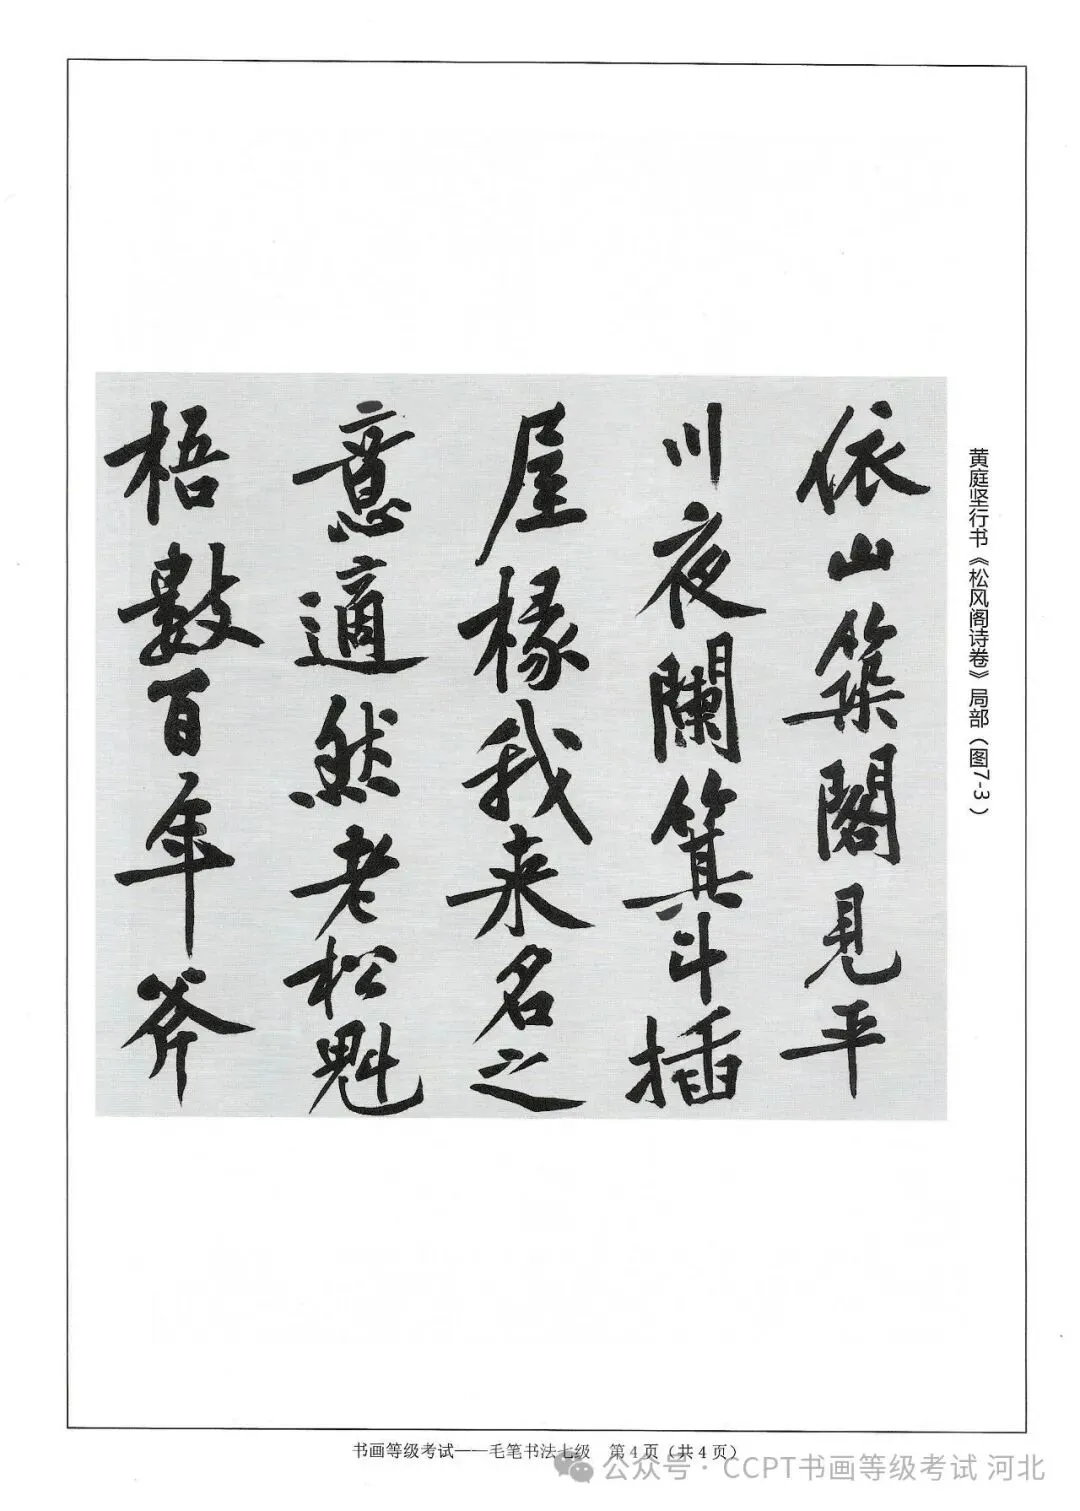 黄庭坚行书《松风阁诗卷》局部（图7-3）
依山築閣見平
川夜闌箕斗插
屋椽我来名之
意適然老松魁
梧數百年斧
书画等级考试——毛笔书法七级　第4页（共4页）
公众号·CCPT书画等级考试 河北